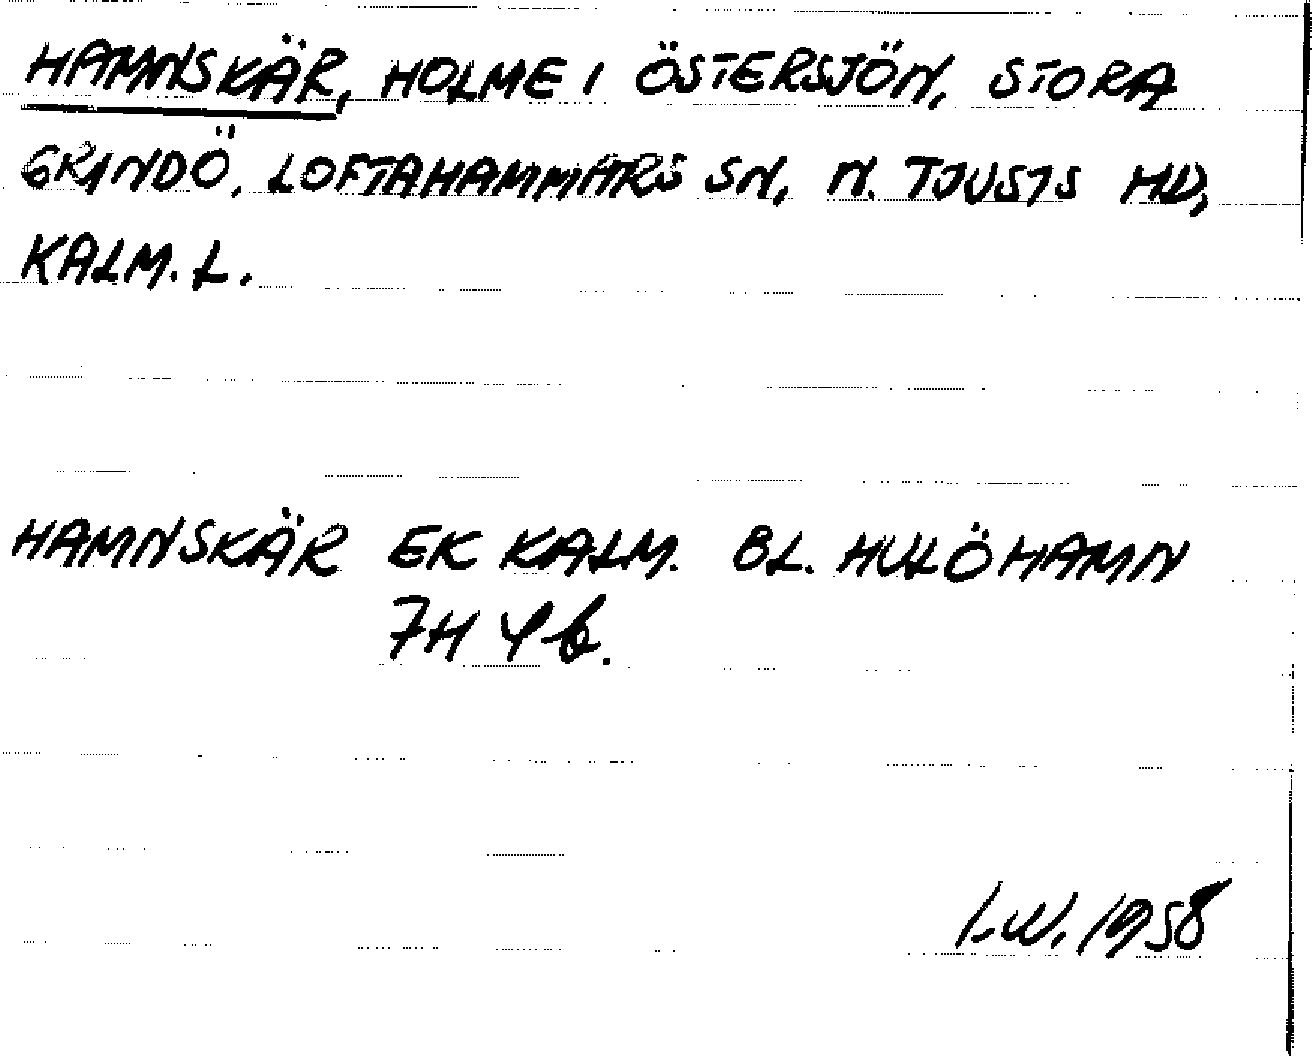 HAMNSKÄR, HOLME I ÖSTERSJÖN, STORA
GRINDÖ, LOFTAHAMMARS SN, N. TJUSTS HD,
KALM. L.
HAMNSKÄR EK KALM. BL. HULÖHAMN
7H 4b.
I.W. 1958